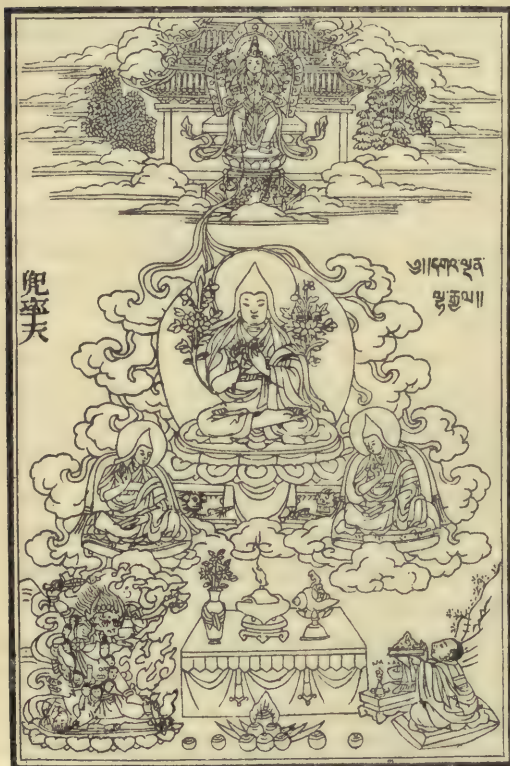 兜率天
༄།།དགའ་ལྡན་
ལྷ་